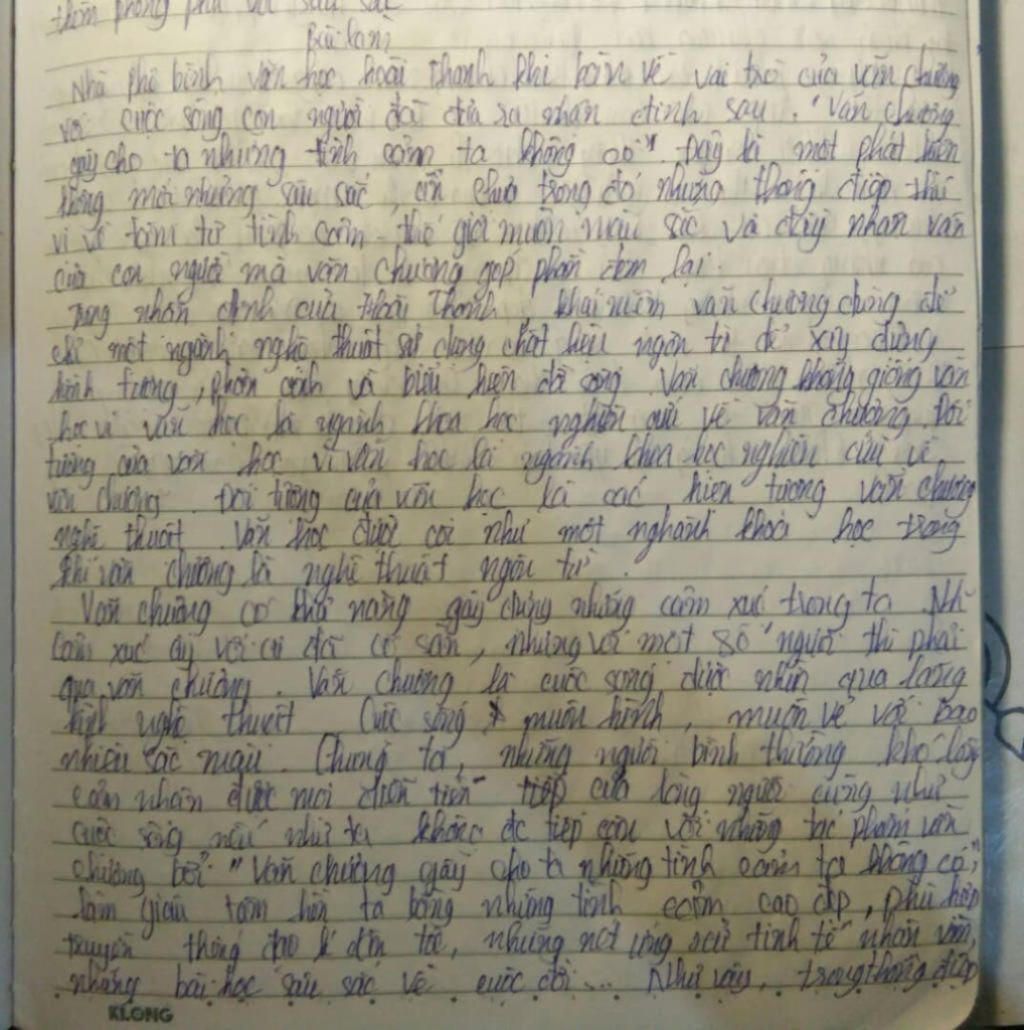 thêm phong phú và sâu sắc
Bài làm
Nhà phê bình văn học hoài thanh khi bàn về vai trò của văn chương
với cuộc sống con người đã đưa ra nhân định sau. "Văn chương
gây cho ta những tình cảm ta không có". Đây là một phát hiện
không mới nhưng sâu sắc, ẩn chứa trong đó những thông điệp thú
vị về tâm tư tình cảm - thế giới muôn màu sắc và đầy nhân văn
của con người mà văn chương góp phần đem lại.
Trong nhân định của Hoài Thanh, khái niệm văn chương dùng để
chỉ một ngành nghệ thuật sử dụng chất liệu ngôn từ để xây dựng
hình tượng, phản ánh và biểu hiện đời sống. Văn chương không giống văn
học vì văn học là ngành khoa học nghiên cứu về văn chương. Đối
tượng của văn học vì văn học là ngành khoa học nghiên cứu về
văn chương. Đối tượng của văn học là các hiện tượng văn chương
nghệ thuật. Văn học được coi như một nghành khoa học trong
khi văn chương là nghệ thuật ngôn từ.
Văn chương có khả năng gây dựng những cảm xúc trong ta.
cảm xúc ấy với có sẵn, nhưng với một số người thì phải
qua văn chương. Văn chương là cuộc sống được nhìn qua lăng
kính nghệ thuật. Cuộc sống muôn hình, muôn vẻ với bao
nhiêu sắc màu. Chúng ta, những người bình thường khó lòng
cảm nhận được mọi diễn tiến tiếp của lòng người cũng như
cuộc sống nếu như ta không đc tiếp cận với những tác phẩm văn
chương bởi "Văn chương gây cho ta những tình cảm ta không có",
làm giàu tâm hồn ta bằng những tình cảm cao đẹp, phù hợp
truyền thống đạo lí dân tộc, những nét ứng xử tinh tế nhân văn,
những bài học sâu sắc về cuộc đời... Như vậy, trong thông điệp
KLONG